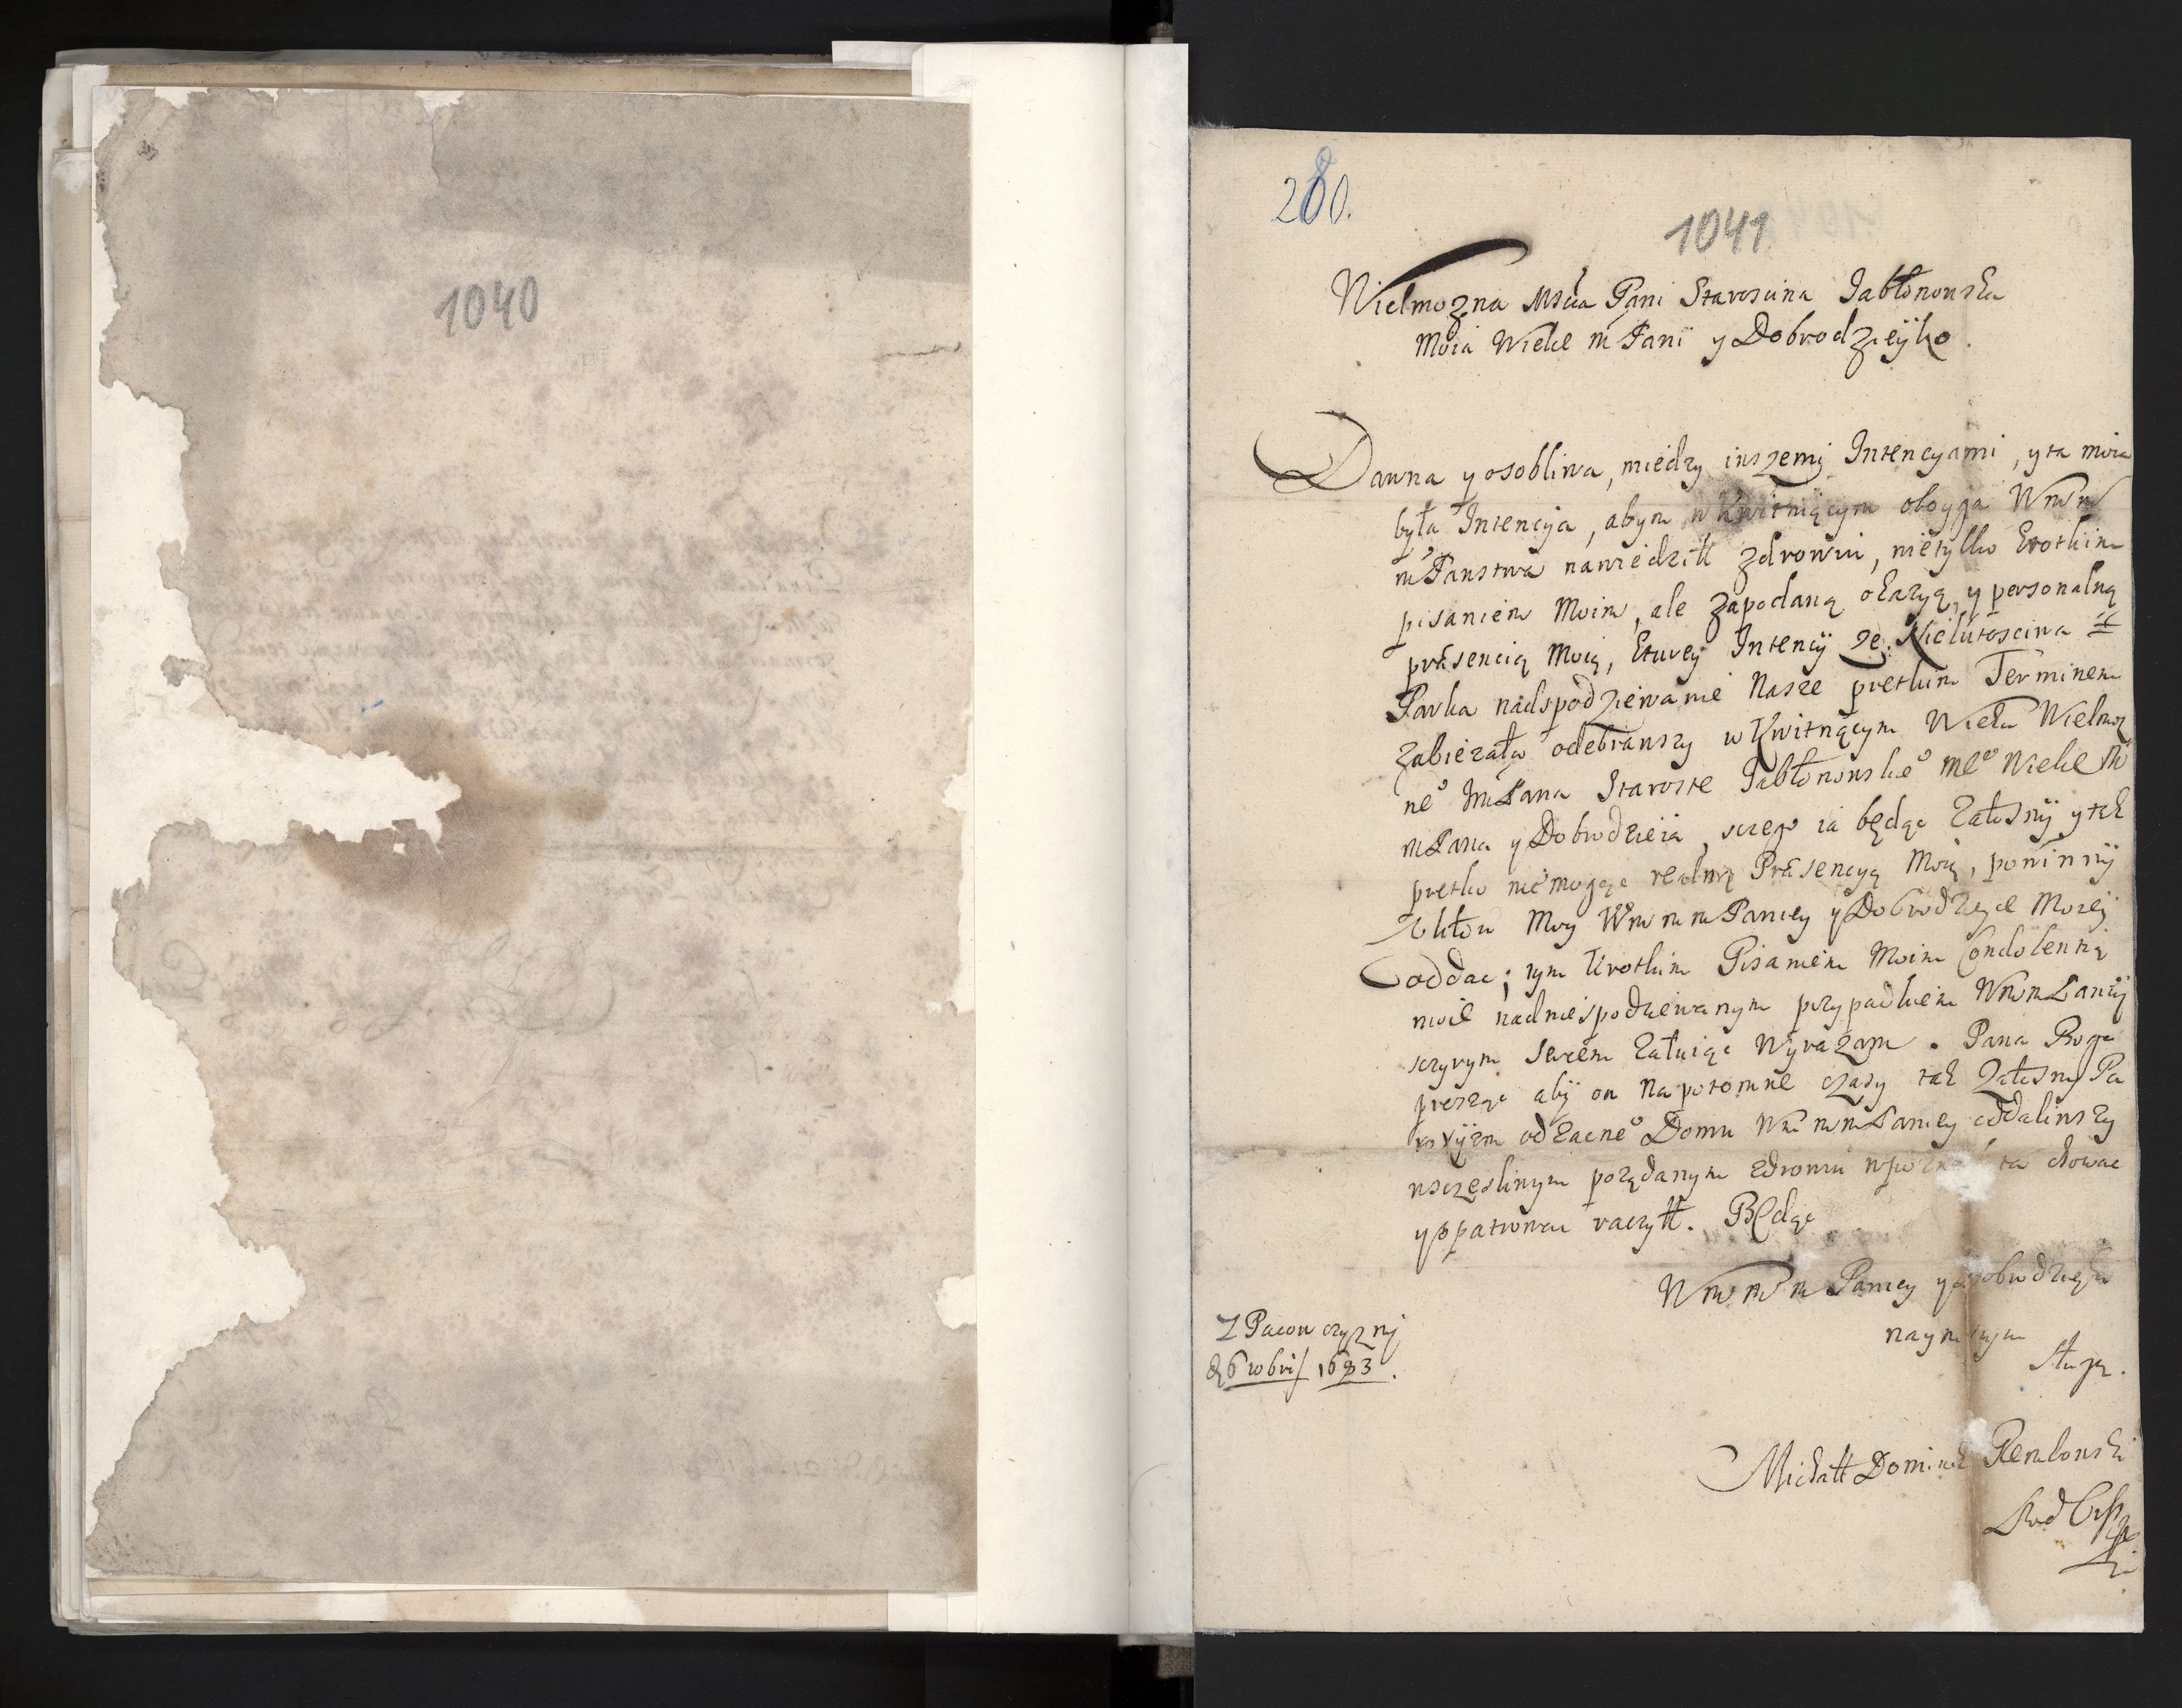 1040
280.
1041
Wielmozna Mscia Pani Starosina Jabłonowska
Moia Wielce m Pani y Dobrodzieyko.
Dawna y osobliwa, miedzy inszemi Intencyami, y ta moia
była Intencyja, abym w Kwitniącym oboyga Wm
m Panstwa nawiedzitt zdrowiu, nietylko krotkim
pisaniem Moim, ale zapodaną okazyą, y personalną
präsencią Moią, ktorey Intencij ze Nielutosciwa
Parka nadspodziewanie Nasze pretkim Terminem
zabiezała odebrawszy w Kwitnącym Wieku Wielmoz
ne° Im Pana Staroste Jabłonowskie° me° Wielce M
m Pana y Dobrodzieia, sczego ia będąc Załosnij y tak
pretko niemogąc realną Präsencyą Moią, powinnij
Ukłon Moy Wm m m Paniey y Dobrodzyce Moiey
oddac; tym krotkim Pisaniem Moim Condolentią
moie nadniespodziewanym przypadkiem Wm m Paniy
sczyrym sercem Załuiąc Wyrazam. Pana Boga
prosząc abÿ on Napotomne czasy tak Załosny Pa
roxyzm odzacne° Domu Wm m m Paniey oddaliwszy
wsczęsliwym pożądanym zdrowiu ta chowac
y raczytt. Będąc
Wm m m Paniey y Dobrodzieyki
naym szym
sługą.
Z Pacowczyzny
d 6 10bris 1683.
Michatt Dominik Rembowski